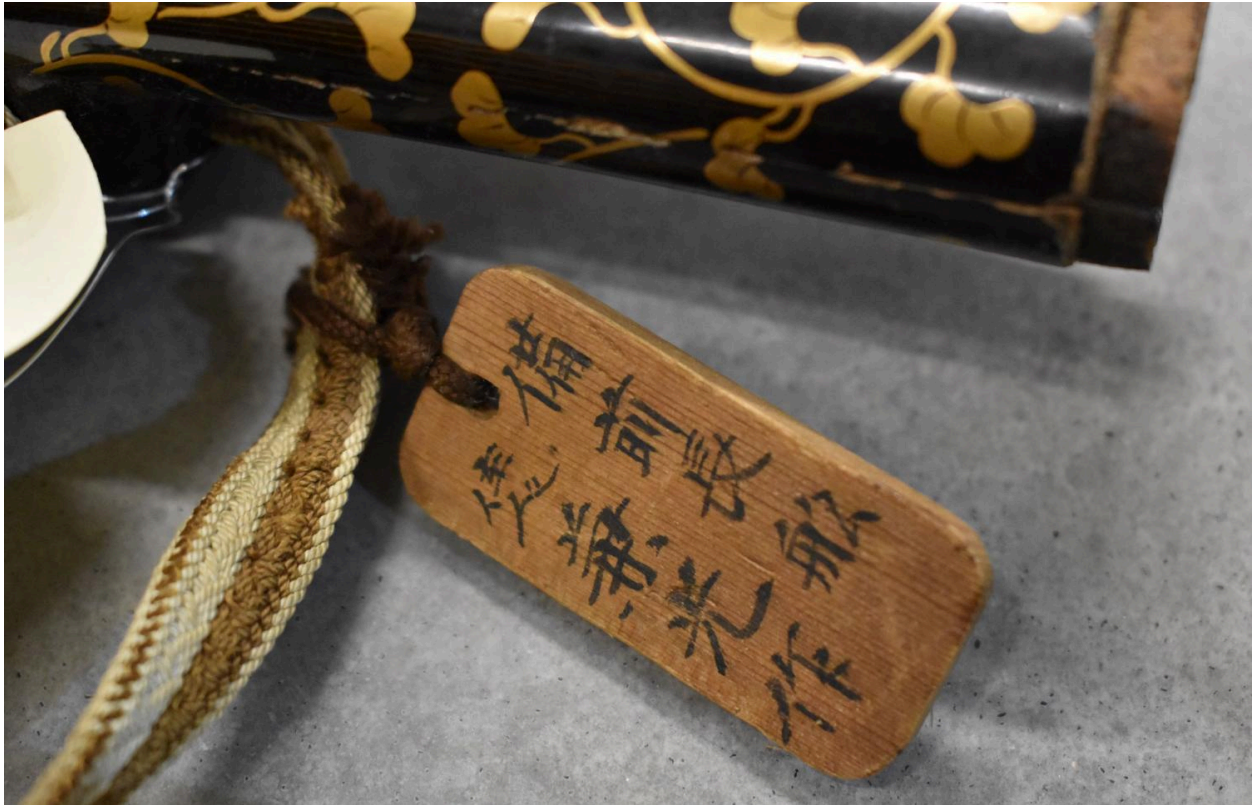 備前長舩
兼光作